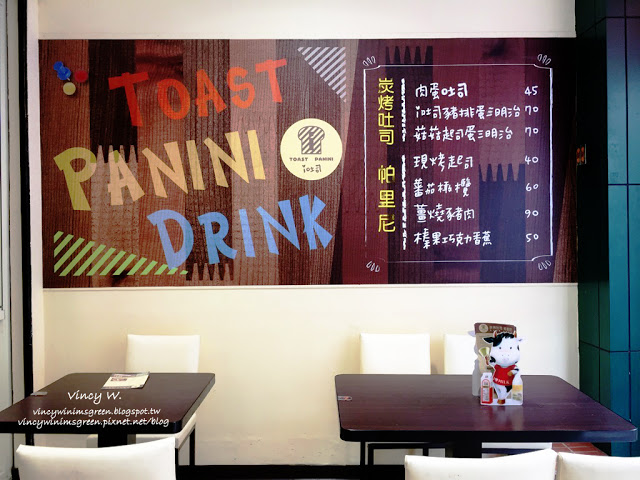 TOAST
PANINI
DRINK
TOAST PANINI
i吐司
炭烤吐司
肉蛋吐司 45
i吐司豬排蛋三明治 70
菇菇起司蛋三明治 70
帕里尼
現烤起司 40
蕃茄橄欖 60
薑燒豬肉 90
榛果巧克力香蕉 50
Vincy W.
vincywinimsgreen.blogspot.tw
vincywinimsgreen.pixnet.net/blog